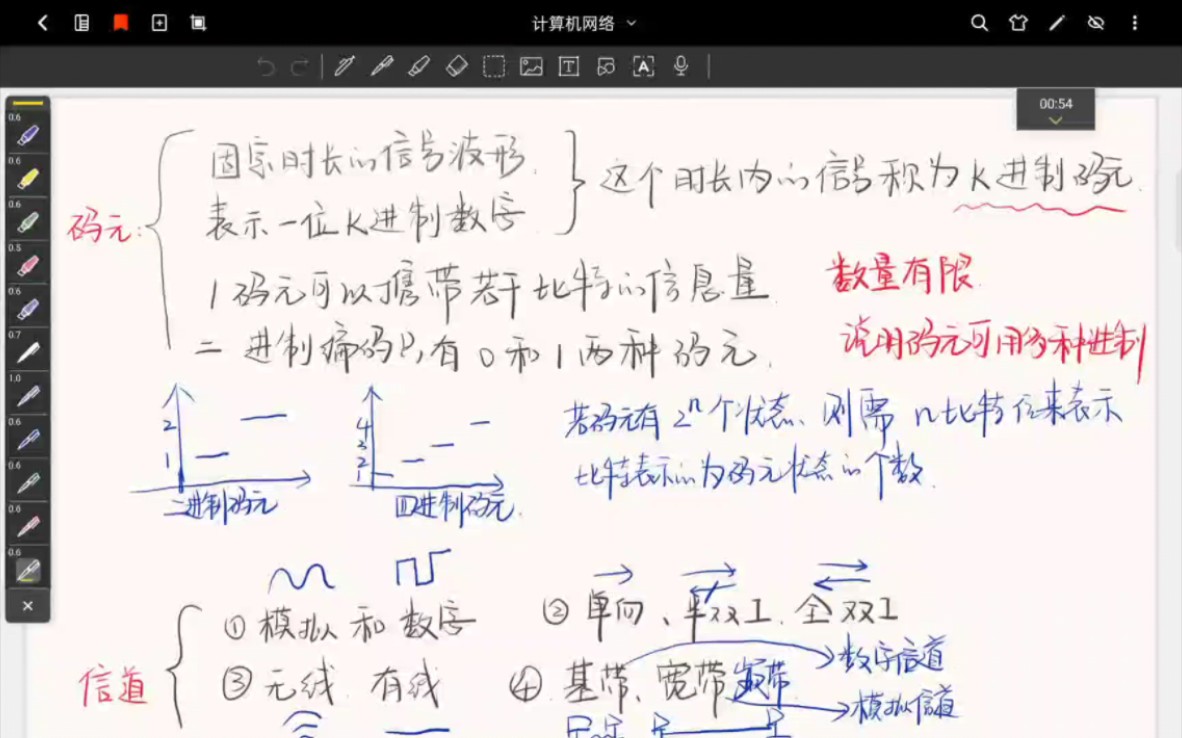 计算机网络
00:54
0.6
0.6
0.6
0.5
0.6
0.7
1.0
0.6
0.6
0.6
0.6
固定时长的信号波形
表示一位K进制数字
这个时长内的信号称为K进制码元.
码元:
1码元可以携带若干比特的信息量
数量有限
二进制编码只有0和1两种码元.
说明码元可用多种进制
2
1
二进制码元
4
3
2
1
四进制码元.
若码元有2ⁿ个状态、则需n比特位来表示
比特表示的为码元状态的个数.
信道
①模拟和数字
②单向、半双工.全双工
③无线 有线
④基带、宽带 频带
数字信道
模拟信道